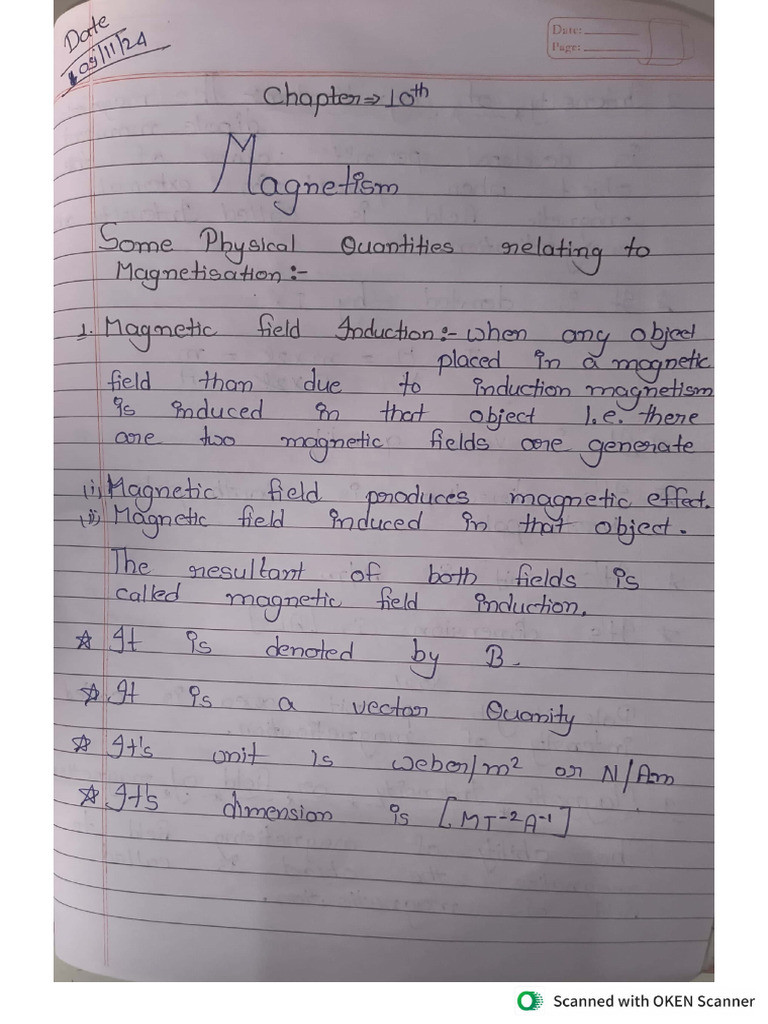 Date
09/11/24
Date:
Page:
Chapter⇒10th
Magnetism
Some Physical Quantities relating to
Magnetisation:-
1. Magnetic field Induction:- when any object
placed in a magnetic
field than due to induction magnetism
is induced in that object I.e. there
are two magnetic fields are generate
(i) Magnetic field produces magnetic effect.
(ii) Magnetic field induced in that object.
The resultant of both fields is
called magnetic field induction.
☆ It is denoted by B.
☆ It is a vector Quanity
☆ It's unit is weber/m² or N/Am
☆ It's dimension is [MT⁻²A⁻¹]
Scanned with OKEN Scanner